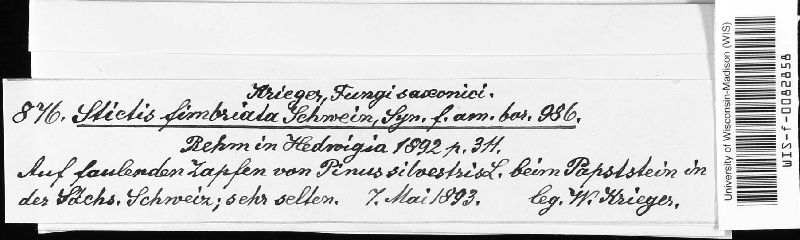 Krieger, Fungi saxonici.
876. Stictis fimbriata Schwein, Syn. f. am. bor. 986.
Rehm in Hedwigia 1892 p. 311.
Auf faulenden Zapfen von Pinus silvestris L. beim Papststein in
der Sächs. Schweiz; sehr selten. 7. Mai 1893. leg. W. Krieger.
University of Wisconsin-Madison (WIS)
WIS-f-0082858